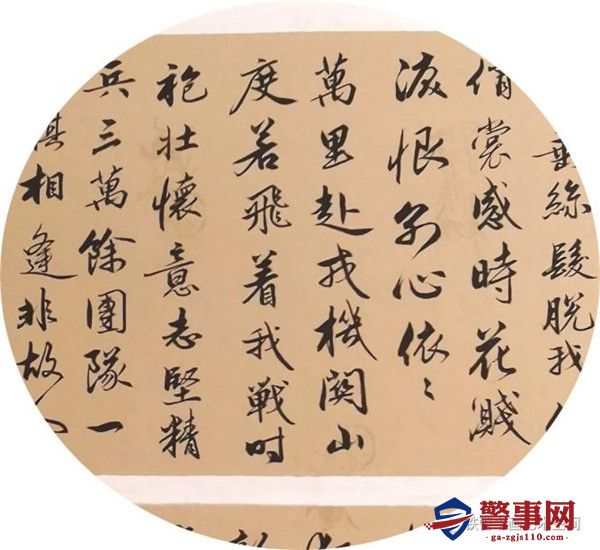 絲髮脫我
裳感時花濺
淚恨別心依〻
萬里赴戎機關山
度若飛着我戰时
袍壯懷意志堅精
兵三萬餘團隊一
相逢非故
警事网
ga-zgjs110.com